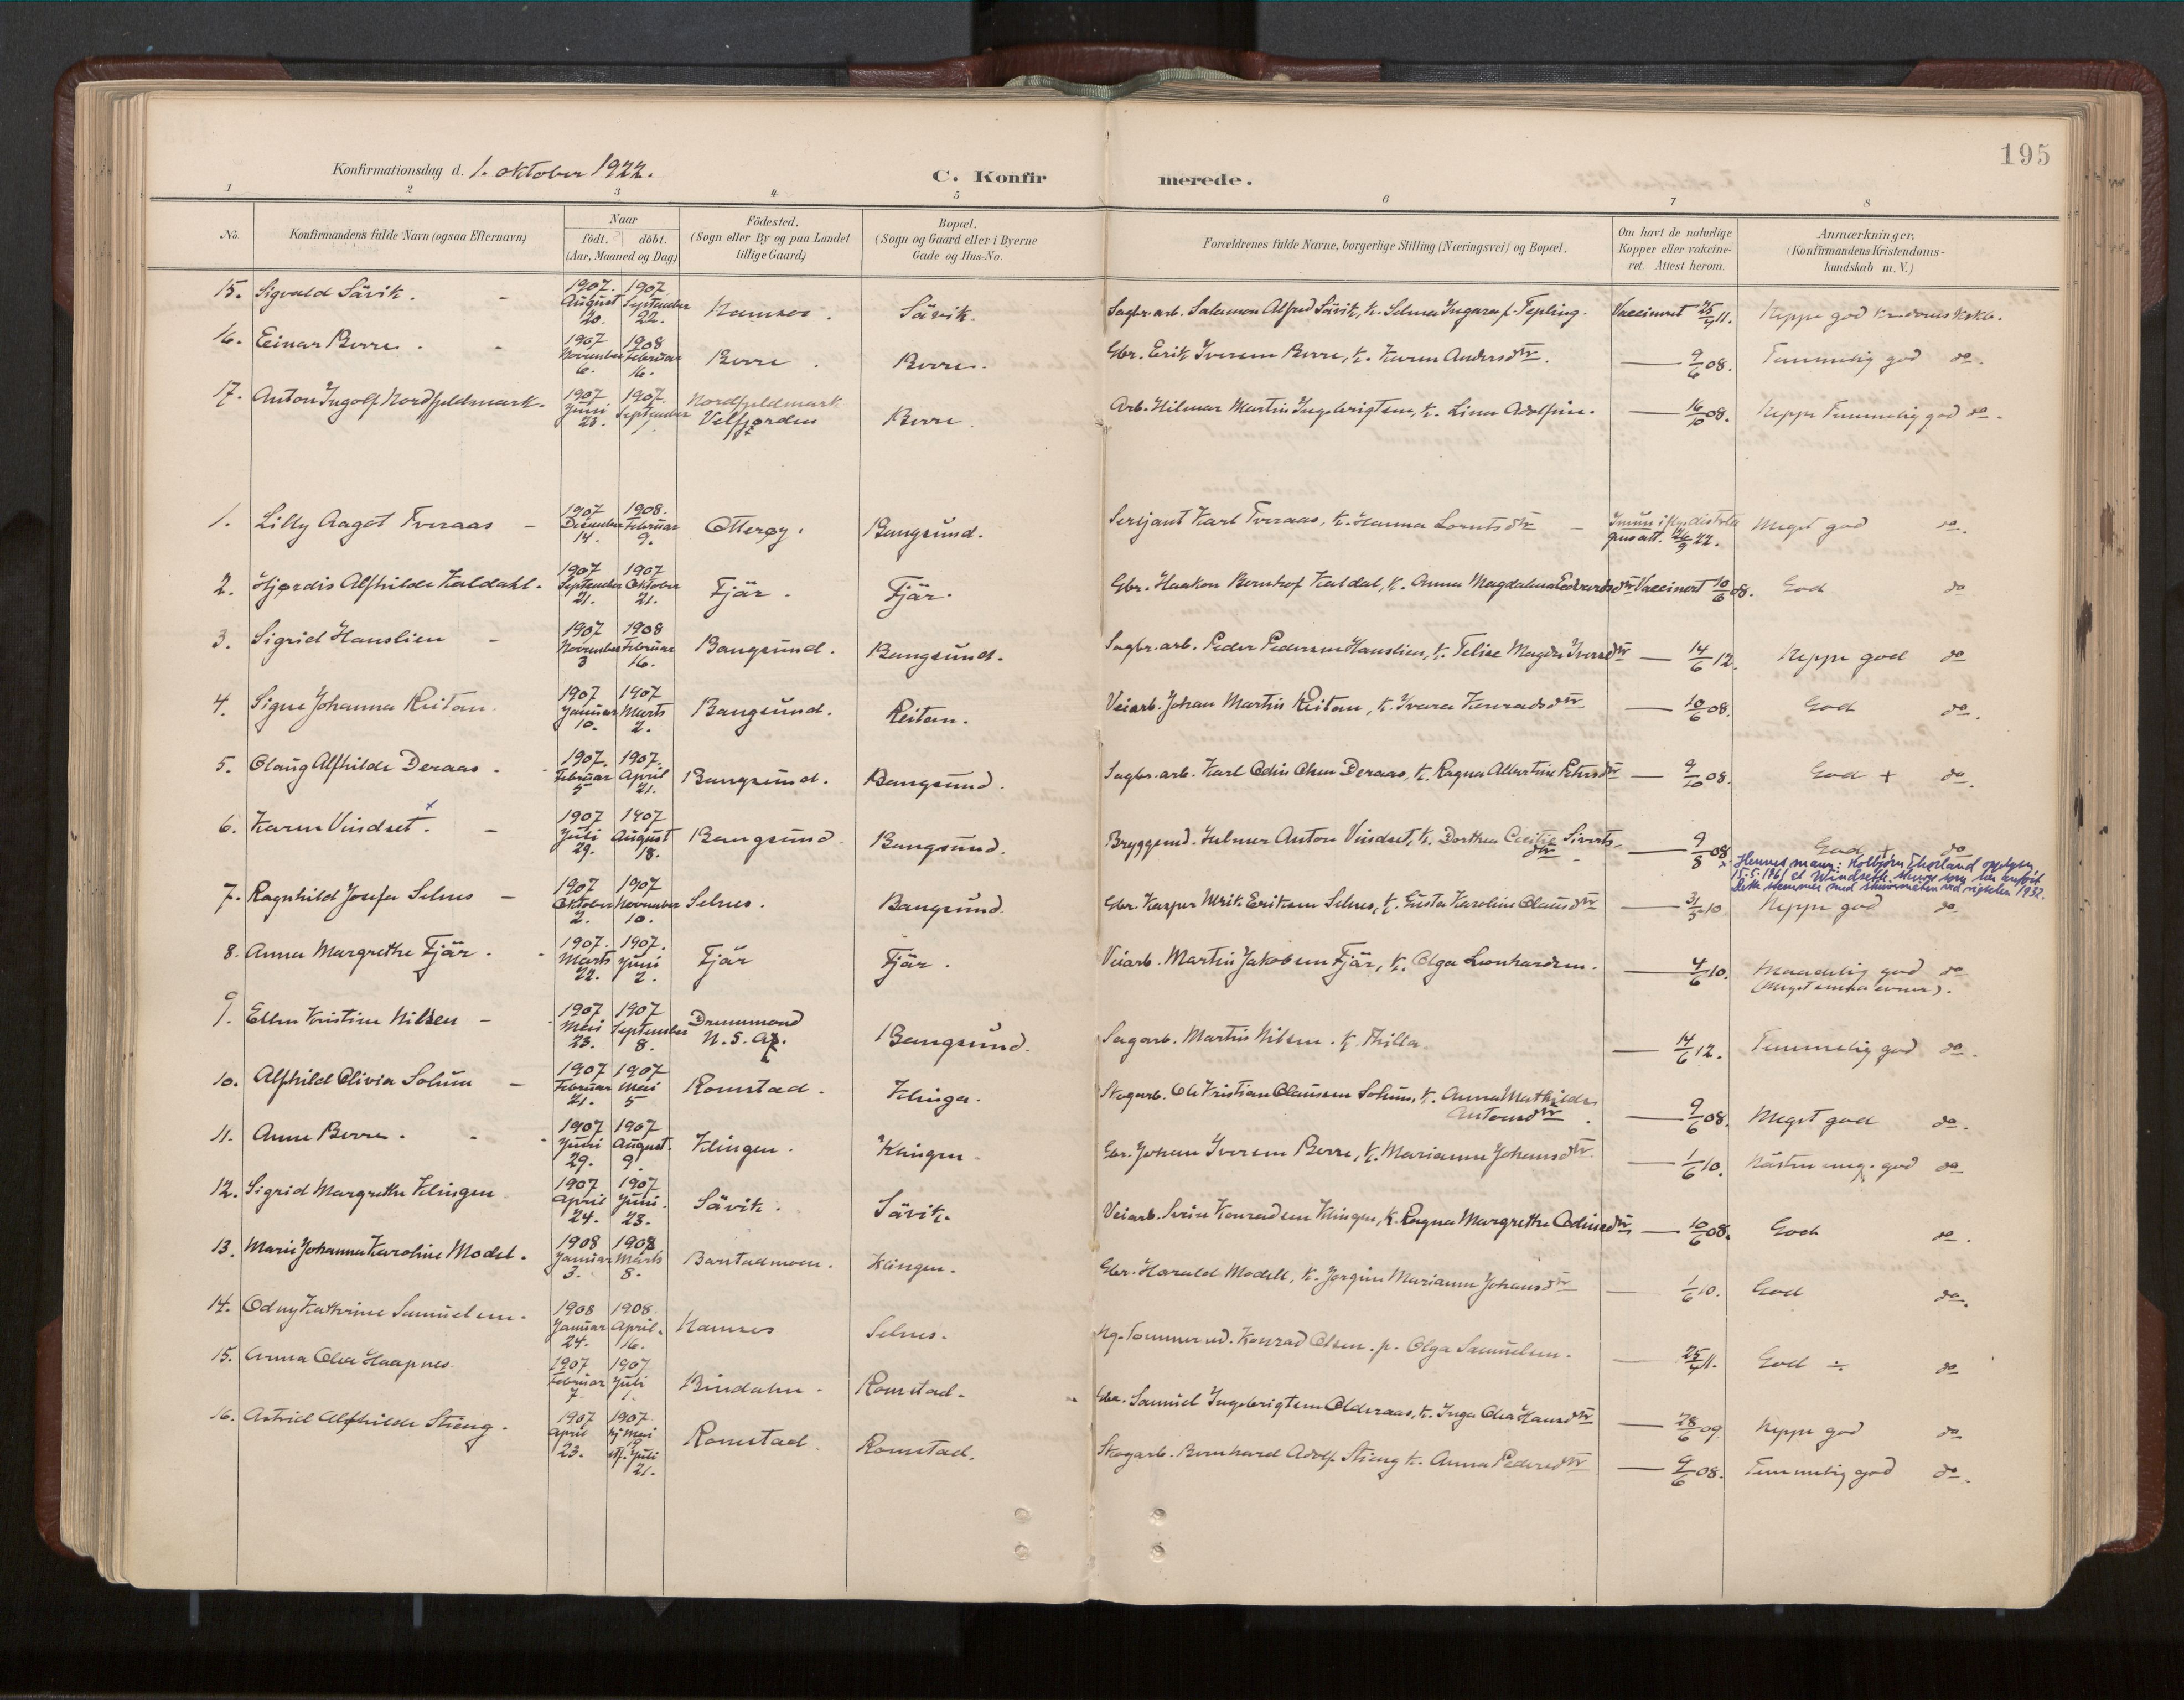 195
Konfirmationsdag d. 1. oktober 1922.
C. Konfir merede.
1 2 3 4 5 6 7 8
No.
Konfirmandens fulde Navn (ogsaa Efternavn)
Naar
födt. döbt.
(Aar, Maaned og Dag)
Födested.
(Sogn eller By og paa Landet
tillige Gaard)
Bopæl.
(Sogn og Gaard eller i Byerne
Gade og Hus-No.
Forældrenes fulde Navne, borgerlige Stilling (Næringsvei) og Bopæl.
Om havt de naturlige
Kopper eller vakcine-
ret. Attest herom.
Anmærkninger.
(Konfirmandens Kristendoms-
kundskab m. V.)
15. Sigvald Sävik. - 1907. August 20. 1907 September 22. Namsos. Sävik. Sagbr. arb. Salamon Alfred Sävik, k. Selma Ingara f. Tepling. Vaccinert 25/4 11. Neppe god
16. Einar Berre. - 1907 November 6. 1908 Februar 16. Berre. Berre. Gbr. Erik Iversen Berre, k. Karen Andersdtr. — 9/6 08. Temmelig god do.
17. Anton Ingolf Nordfjeldmark. 1907 Juni 23. 1907. September 1. Nordfjeldmark Velfjorden Berre. Arb. Hilmar Martin Ingebrigtsen, k. Lina Adolfine. — 16/10 08. Neppe Temmelig god do.
1. Lilly Aagot Tveraas - 1907 Desember 14. 1908. Februar 9. Otterøy. Bangsund. Serjant Karl Tveraas, k. Hanna Lorntsdtr - Imun att. 26/9 22. Meget god do.
2. Hjørdis Alfhilde Kaldahl. 1907 September 21. 1907 Oktober 21. Fjär. Fjär. Gbr. Haakon Bernhof Kaldal, k. Anna Magdalena Edvardsdtr Vaccinert 10/6 08. God do
3. Sigrid Hanslien - 1907 November 3 1908 Februar 16. Bangsund. Bangsund. Sagbr. arb. Peder Pedersen Hanslien, k. Telise Magda Iversdtr — 14/6 12. Neppe god do
4. Signe Johanna Reitan. 1907 Januar 10. 1907 Marts 2. Bangsund. Reitan. Veiarb. Johan Martin Reitan, k. Ivara Konradsdtr — 10/6 08. God do.
5. Olaug Alfhilde Deraas. 1907. Februar 5 1907. April 21. Bangsund. Bangsund. Sagbr. arb. Karl Odin Olsen Deraas, k. Ragna Albertine Petersdtr — 9/10 08. God + do.
6. Karen Vindset. x - 1907 Juli 29. 1907 August 18. Bangsund. Bangsund. Bryggemd. Hilmer Anton Vindset, k. Dorthea Cecilie Sivertsdtr. — 9/8 08. God + do
x Hennes mann: Kolbjørn Thorland opplyser
15.5.1961 at Windseth skrives som her innført
Dette stemmer med skrivemåten ved vigselen 1932.
7. Ragnhild Josefa Selnes - 1907 Oktober 2. 1907 November 10. Selnes. Bangsund. Gbr. Kasper Ulrik Eriksen Selnes, k. Gusta Karoline Olausdtr — 31/5 10. Neppe god do.
8. Anna Margrethe Fjär. 1907. Marts 22. 1907. Juni 2. Fjär Fjär. Veiarb. Martin Jakobsen Fjär, k. Olga Leonhardsen. — 4/6 10. Maadelig god do
(Meget smaa evner).
9. Ellen Kristine Nilsen - 1907 Mai 23. 1907 September 8. Drummond N. S. Bangsund. Sagarb. Martin Nilsen. k. Thilla. — 14/6 12. Temmelig god do.
10. Alfhild Olivia Solum - 1907 Februar 21. 1907 Mai 5 Romstad. Klinga. Skogarb. Ole Kristian Olausen Solum, k. Anna Mathilde Antonsdtr. — 9/6 08. Meget god do.
11. Anne Berre. - 1907 Juni 29. 1907 August. 9. Klingen. Klingen. Gbr. Johan Iversen Berre, k. Marianne Johansdtr. — 1/6 10. Nästen meg. god do
12. Sigrid Margrethe Klingen 1907 April 24. 1907 Juni. 23. Sävik. Sävik. Veiarb. Serin Konradsen Klingen, k. Ragna Margrethe Odinsdtr — 10/6 08. God do.
13. Marie Johanna Karoline Model. 1908 Januar 3. 1908 Marts 8. Barstadmoen. Klingen. Gbr. Harald Modell, k. Jørgine Marianne Johansdtr — 1/6 10. God do.
14. Odny Kathrine Samuelsen. 1908 Januar 24. 1908. April. 16. Namsos Selnes. Ug. Tømmermd. Konrad Olsen. p. Olga Samuelsen. — 25/4 11. God ÷ do
15. Anna Olea Haapnes. 1907 Februar 7. 1907 Juli 1. Bindalen. Romstad. Gbr. Samuel Ingebrigtsen Olderaas, k. Inga Olea Hansdtr — 28/6 09 Neppe god do
16. Astrid Alfhilde Stieng. 1907 April 23. 1907. hj. Mai 19 stf. Juli 21. Romstad. Romstad. Skogarb. Bernhard Adolf Stieng k. Anna Pedersdtr — 9/6 08. Temmelig god do.